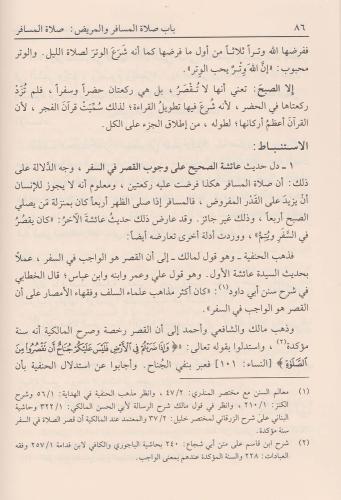 ٨٦ باب صلاة المسافر والمريض: صلاة المسافر
ففرضها الله وتراً ثلاثاً من أول ما فرضها كما أنه شَرَعَ الوترَ لصلاة الليل. والوتر
محبوب: «إنَّ اللهَ وِتْرٌ يحب الوتر».
إلا الصبحَ: تعني أنها لا تُقْصَرُ، بل هي ركعتان حضراً وسفراً، فلم تُزَدْ
ركعتاها في الحضر، لأنه شُرعَ فيها تطويلُ القراءة؛ لذلك سُمِّيَتْ قرآنَ الفجر، لأن
القرآنَ أعظمُ أركانها؛ لطوله، من إطلاق الجزء على الكل.
الاستنباط:
١ - دل حديث عائشة الصحيح على وجوب القصر في السفر، وجه الدَّلالة على
ذلك: أن صلاة المسافر هكذا فرضت عليه ركعتين، ومعلوم أنه لا يجوز للإنسان
أنْ يزيدَ على القَدْر المفروض، فالمسافر إذا صلى الظهر أربعاً كان بمنزلة مَن يصلي
الصبح أربعاً، وذلك غير جائز. وقد عارض ذلك حديثُ عائشةَ الآخَرُ: «كان يقصُرُ
في السَّفَر ويُتِمُّ»، ووردت أدلة أخرى تعارضه أيضاً:
فذهب الحنفية - وهو قول لمالك - إلى أن القصر هو الواجب في السفر، عملاً
بحديث السيدة عائشة الأول. وهو قول علي وعمر وابنه وابن عباس؛ قال الخطابي
في شرح سنن أبي داود(١): «كان أكثر مذاهب علماء السلف وفقهاء الأمصار على أن
القصر هو الواجب في السفر».
وذهب مالك والشافعي وأحمد إلى أن القصر رخصة وصرح المالكية أنه سنة
مؤكدة(٢)، واستدلوا بقوله تعالى: ﴿وَإِذَا ضَرَبْتُمْ فِي الْأَرْضِ فَلَيْسَ عَلَيْكُمْ جُنَاحٌ أَن تَقْصُرُوا مِنَ
الصَّلَاةِ﴾ [النساء: ١٠١] فعبر بنفي الجُناح. وأجابوا عن استدلال الحنفية بأن
(١) معالم السنن مع مختصر المنذري: ٤٧/٢، وانظر مذهب الحنفية في الهداية: ٥٦/١ وشرح
الكنز: ٢١٠/١، وانظر في قول مالك شرح الرسالة لأبي الحسن المالكي: ٣٢٢/١ وحاشية
البناني على شرح الزرقاني لمختصر خليل: ٣٧/٢ والمعتمد عند المالكية أن قصر الصلاة في السفر
سنة مؤكدة.
(٢) شرح ابن قاسم على متن أبي شجاع: ٢٤٠ بحاشية الباجوري والكافي لابن قدامة ٢٥٧/١ وفقه
العبادات: ٢٢٨ والسنة المؤكدة عندهم بمعنى الواجب.